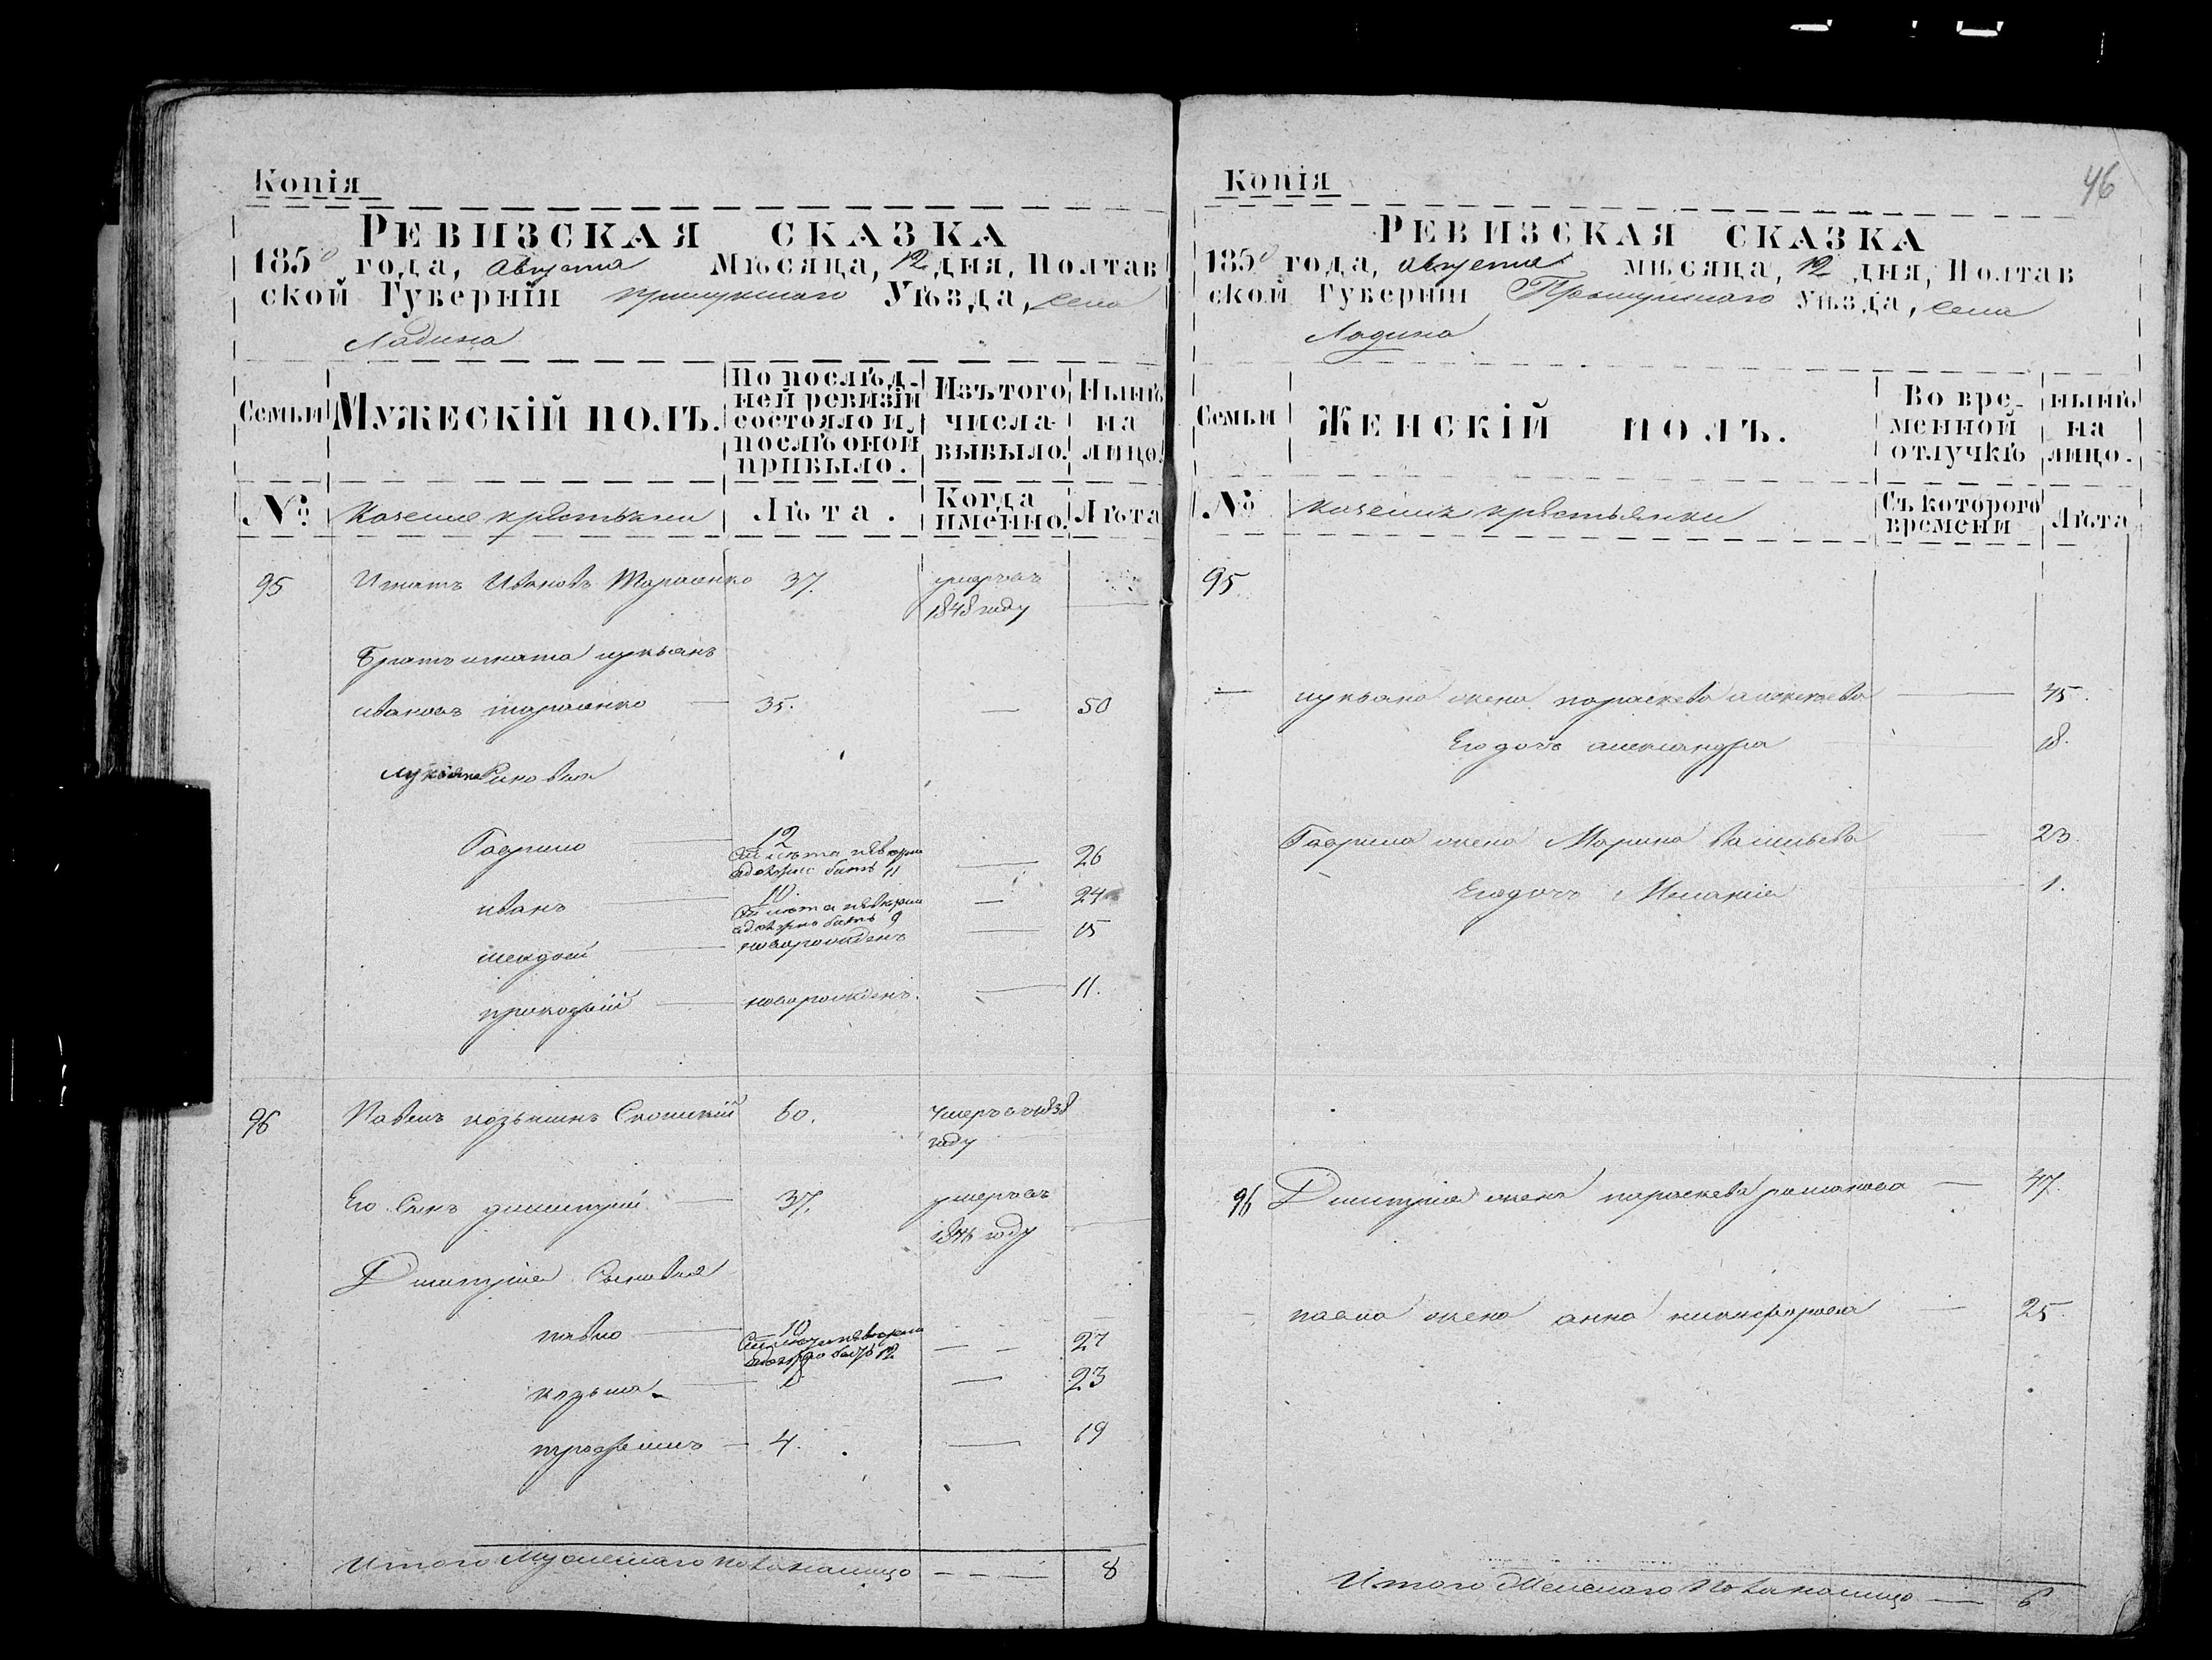 Копія
РЕВИЗСКАЯ СКАЗКА
1850 года, августа Мѣсяца, 12 дня, Полтав
ской Губерніи прилуцкаго Уѣзда, села
Ладина
Семьи
МУЖЕСКІЙ ПОЛЪ.
По послѣд-
ней ревизіи
состояло и
послѣ оной
прибыло.
Изъ того
числа
выбыло.
Нынѣ
на
лицо.
№
Казенные крестьяни
Лѣта.
Когда
именно.
Лѣта
95 Игнатъ Ивановъ Тарасенко 37. умеръ въ
1848 году
Братъ игната лукьянъ
ивановъ тарасенко 35. — 50
Лукьяна Сыновья
Гаврило 12
11 — 26
иванъ 10.
9 — 24
новорожденъ — 15
прокофій новорожденъ. — 11.
96 Павелъ козьминъ 60. умеръ въ 1838
году
Его Сынъ дмитрій 37. умеръ въ
1846 году
Дмитрія Сыновья
павло 10
12 — 27
козьма 8 — 23
трофимъ 4. — 19
Итого Мужескаго пола налицо — 8
46
Копія
РЕВИЗСКАЯ СКАЗКА
1850 года, августа мѣсяца, 12 дня, Полтав
ской Губерніи Прилуцкаго Уѣзда, села
Ладина
Семьи
ЖЕНСКІЙ ПОЛЪ.
Во вре-
менной
отлучкѣ
нынѣ
на
лицо.
№
казенныя крестьянки
Съ которого
времени
Лѣта
95
— лукьяна жена параскева алексѣева — 45.
Его дочь александра 18.
Гаврила жена Марина васильева — 23.
Его дочь Меланія 1.
96 Дмитрія жена параскева романова — 47.
павла жена анна никифорова — 25.
Итого Женскаго пола налицо — 6